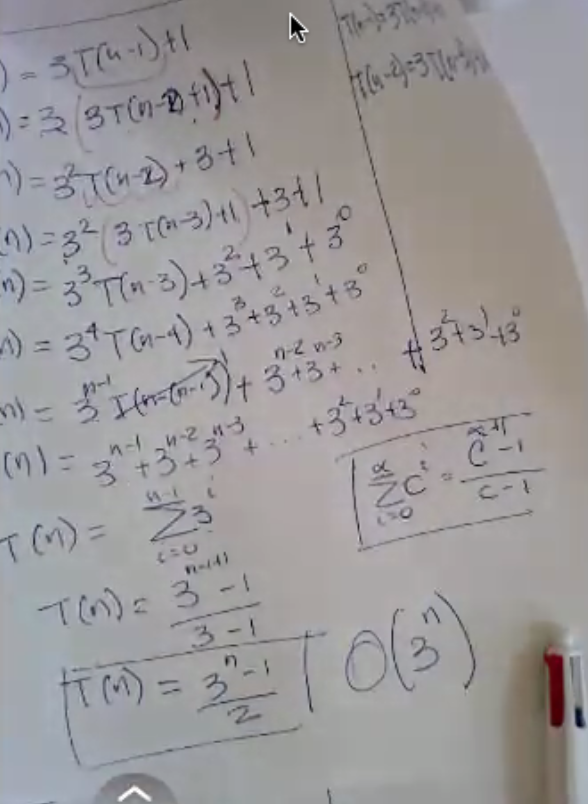 ) = 3T(n-1)+1
) = 3(3T(n-2)+1)+1
n) = 3²T(n-2)+3+1
(n) = 3²(3T(n-3)+1)+3+1
n) = 3³T(n-3)+3²+3¹+3⁰
n) = 3⁴T(n-4)+3³+3²+3¹+3⁰
n) = 3ⁿ⁻¹T(n-(n-1))+3ⁿ⁻²+3ⁿ⁻³+... +3²+3¹+3⁰
(n) = 3ⁿ⁻¹+3ⁿ⁻²+3ⁿ⁻³+....+3²+3¹+3⁰
T(n) = ∑ᵢ₌₀ⁿ⁻¹ 3ⁱ
T(n) = (3ⁿ⁻¹⁺¹-1)/(3-1)
T(n) = (3ⁿ-1)/2
O(3ⁿ)
∑ᵢ₌₀^α Cⁱ = (C^(α+1)-1)/(c-1)
T(n-1)=3T(n-2)
T(n-2)=3T(n-3)